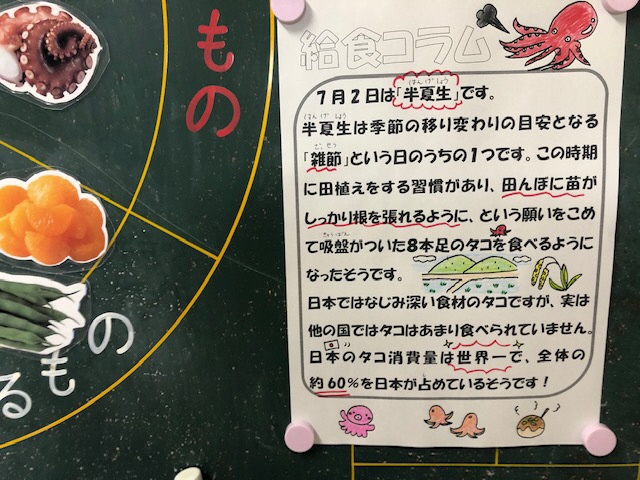 もの
るもの
給食コラム
はんげしょう
7月2日は「半夏生」です。
はんげしょう
半夏生は季節の移り変わりの目安となる
ざっせつ
「雑節」という日のうちの1つです。この時期
に田植えをする習慣があり、田んぼに苗が
しっかり根を張れるように、という願いをこめ
きゅうばん
て吸盤がついた8本足のタコを食べるように
なったそうです。
日本ではなじみ深い食材のタコですが、実は
他の国ではタコはあまり食べられていません。
日本のタコ消費量は世界一で、全体の
約60%を日本が占めているそうです！